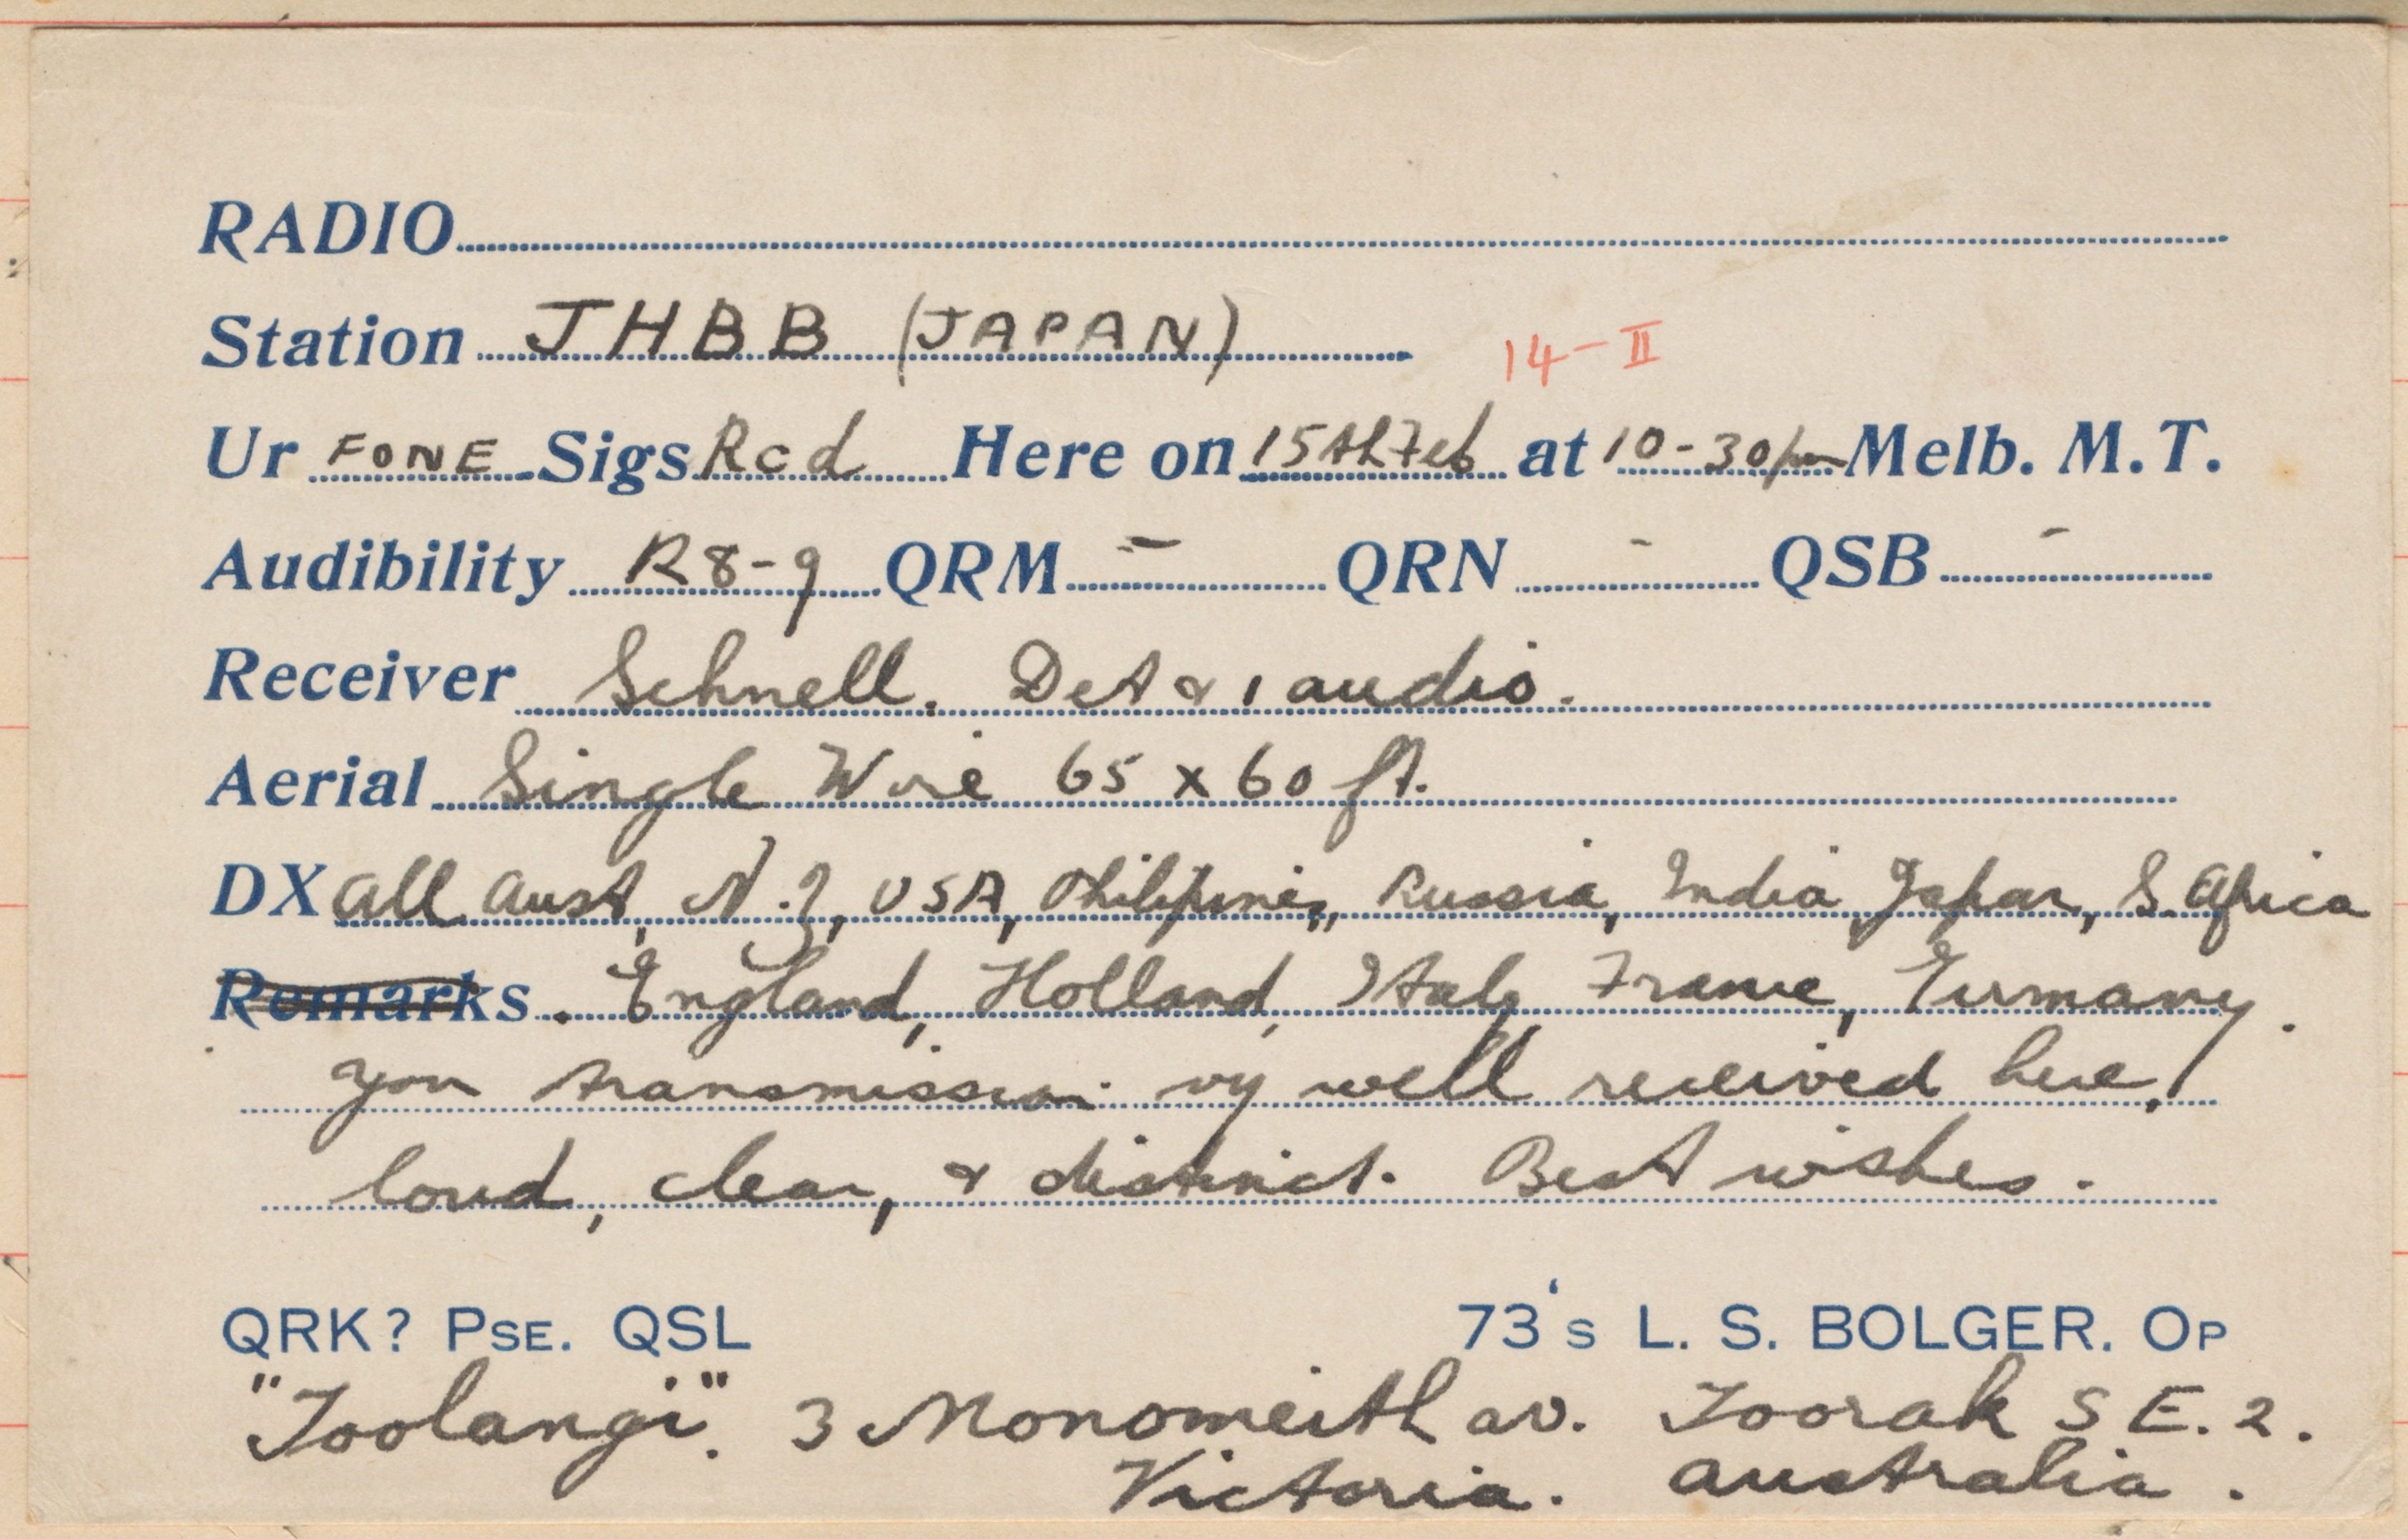 RADIO
Station JHBB (JAPAN)
14-II
Ur FONE Sigs Rcd Here on 15th Feb at 10-30pm Melb. M.T.
Audibility R8-9 QRM - QRN - QSB -
Receiver Schnell. Det & 1 audio.
Aerial Single Wire 65 x 60 ft.
DX All Aust, N.Z, USA, Philipines, Russia, India, Japan, S. Africa
Remarks. England, Holland, Italy France, Germany.
Your transmission vy well received here,
loud, clear, & distinct. Best wishes.
QRK? PSE. QSL 73's L. S. BOLGER. OP
"Toolangi". 3 Monomeith av. Toorak S E. 2.
Victoria. Australia.